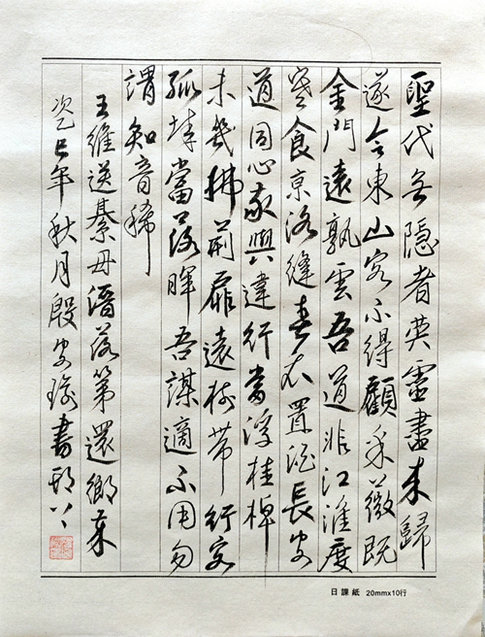 聖代無隱者英靈盡来歸
遂令東山客不得顧采薇既
金門遠孰雲吾道非江淮度
寒食京洛縫春衣置酒長安
道同心我與違行當浮桂棹
未幾拂荊扉遠樹帶行客
孤城當落暉吾謀適不用勿
謂知音稀
王維送綦毋潛落第還鄉
次乙巳年秋月殷安瑜書
日課紙 20mmx10行